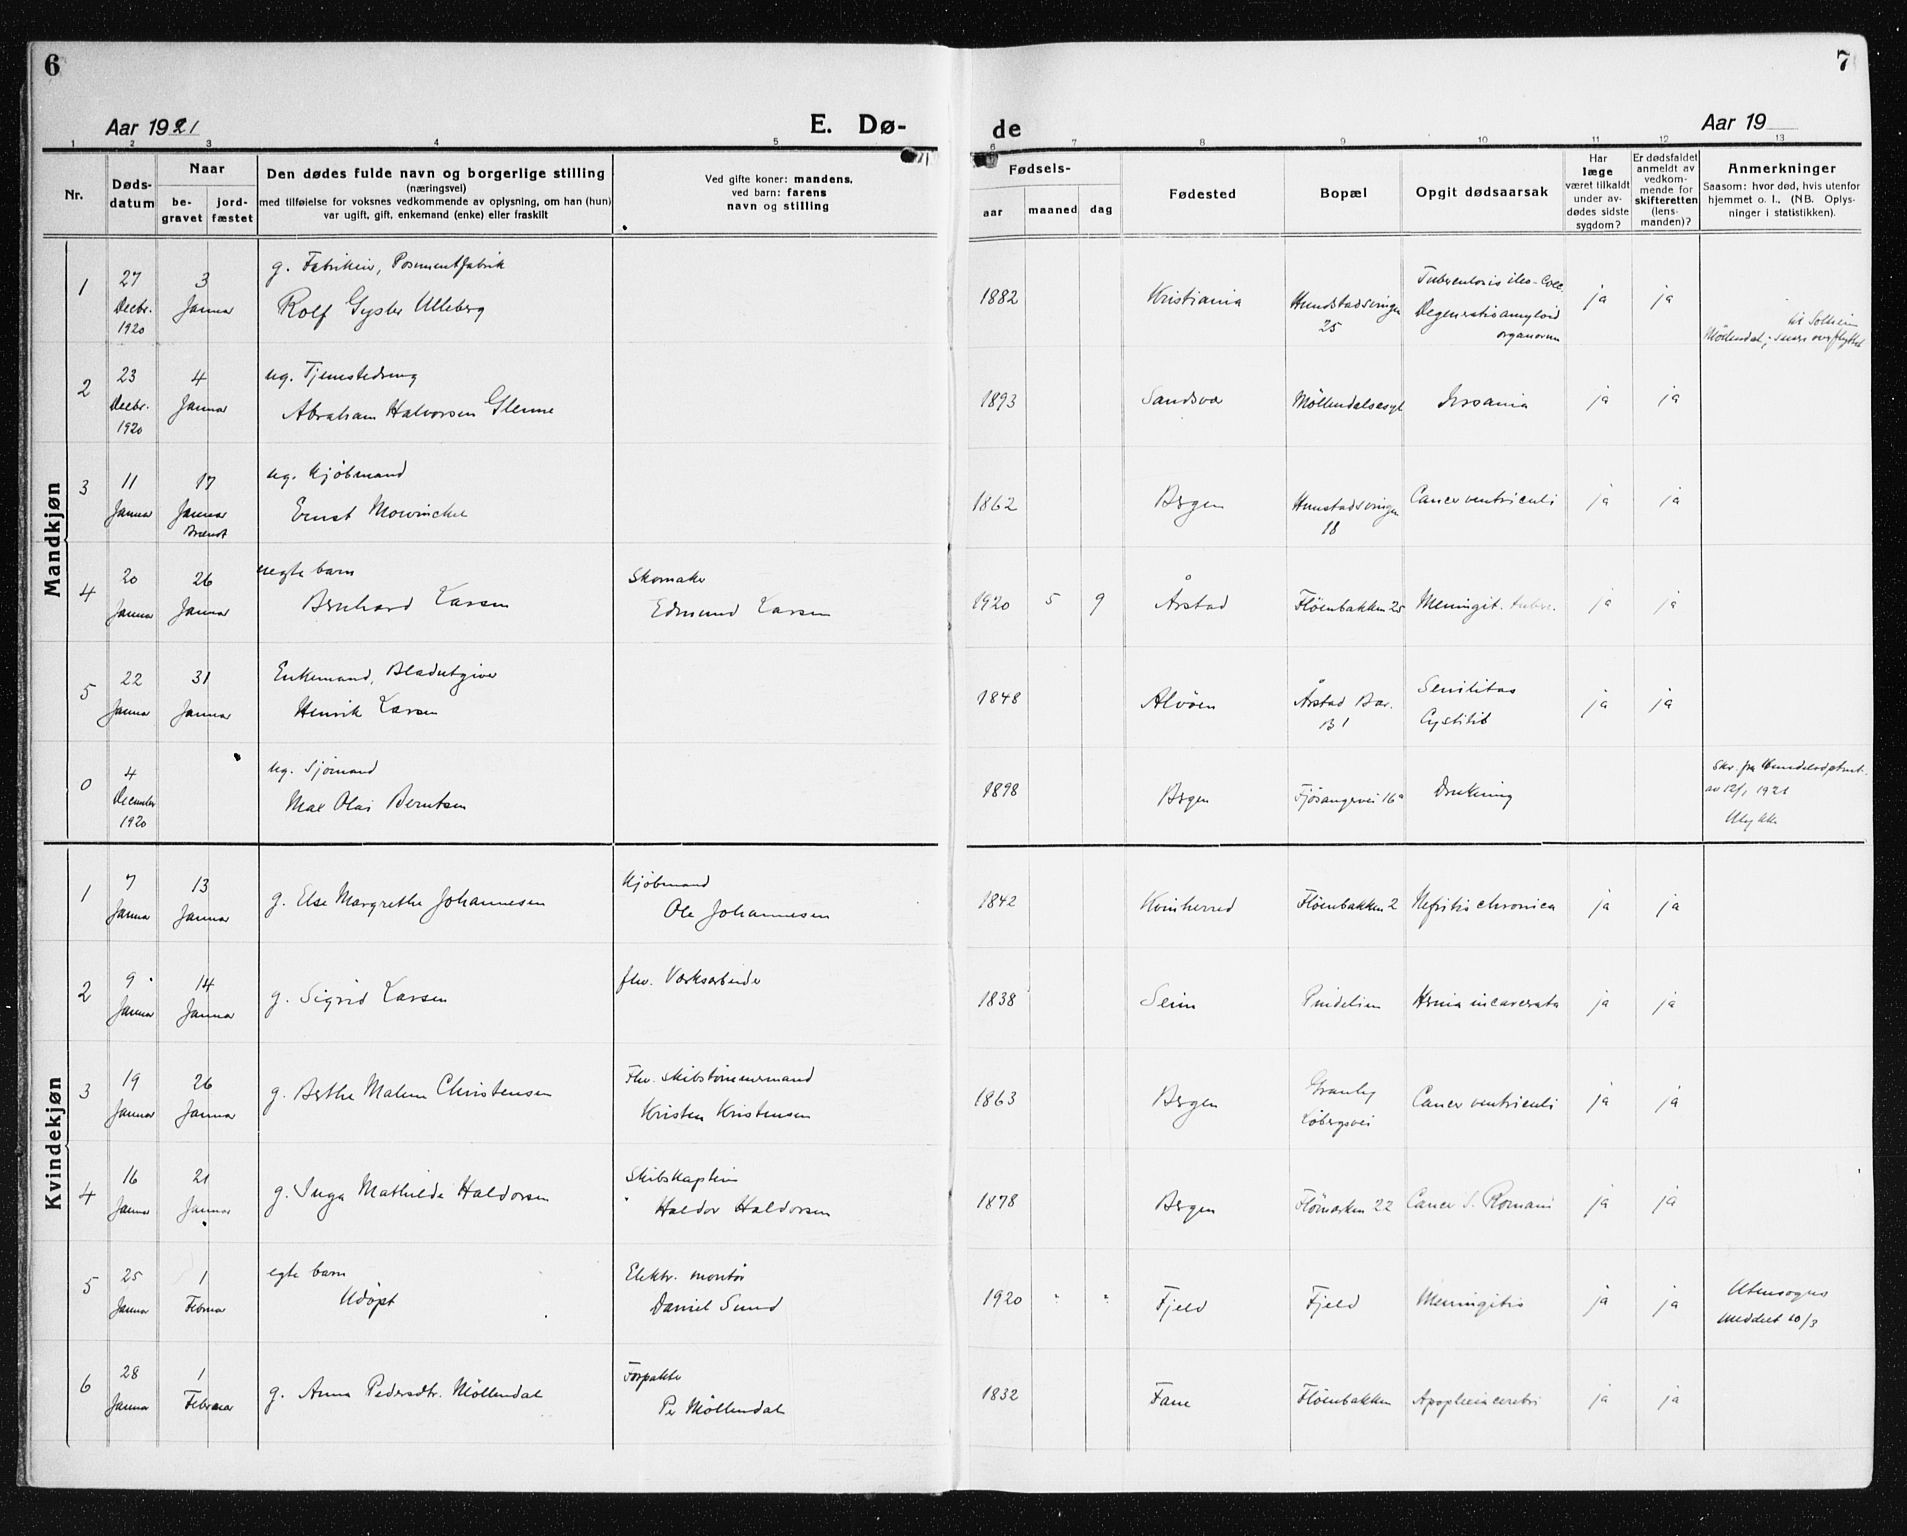 6
7
Aar 1921
E. Dø-
de
Aar 19
1 2 3 4 5 6 7 8 9 10 11 12 13
Nr.
Døds-
datum
Naar
be-
gravet
jord-
fæstet
Den dødes fulde navn og borgerlige stilling
(næringsvei)
med tilføielse for voksnes vedkommende av oplysning, om han (hun)
var ugift, gift, enkemand (enke) eller fraskilt
Ved gifte koner: mandens,
ved barn: farens
navn og stilling
Fødsels-
aar
maaned
dag
Fødested
Bopæl
Opgit dødsaarsak
Har
læge
været tilkaldt
under av-
dødes sidste
sygdom?
Er dødsfaldet
anmeldt av
vedkom-
mende for
skifteretten
(lens-
manden)?
Anmerkninger
Saasom: hvor død, hvis utenfor
hjemmet o. l., (NB. Oplys-
ninger i statistikken).
Mandkjøn
1
27 Decbr. 1920
3 Januar
g. Fabrikeier, Posementfabrik
Rolf Gysler Ulleberg
1882
Kristiania
25
Tuberculosis ileo-Coec.
Degeneratio amyloid
organorum
ja
ja
til Solheim
Møllendal;
2
23 Decbr. 1920
4 Januar
ug. Tjenestedreng
Abraham Halvorsen Glenne
1893
Sandsvær
Møllendalsasyl
Insania
ja
ja
3
11 Januar
17 Januar
Brændt
ug. Kjøbmand
Ernst Mowinckel
1862
Bergen
Hunstadsvingen
18
Cancer ventriculi
ja
ja
4
20 Januar
26 Januar
uegte barn
Bernhard Larsen
Skomaker
Edmund Larsen
1920
5
9
Årstad
Fløenbakken 25
Meningit. tuberc.
ja
ja
5
22 Januar
31 Januar
Enkemand, Bladutgiver
Henrik Larsen
1848
Alvøen
Årstad Bar.
B 1
Senilitas
Cystitis
ja
ja
0
4 December 1920
ug. Sjømand
Max Olai Berntsen
1898
Bergen
Fjøsangervei 16a
Drukning
Skr. fra
av 12/1 1921
Ulykke
Kvindekjøn
1
7 Januar
13 Januar
g. Else Margrethe Johannesen
Kjøbmand
Ole Johannesen
1842
Kvinherred
Fløenbakken 2
Nefritis chronica
ja
ja
2
9 Januar
14 Januar
g. Sigrid Larsen
fhv. Værksarbeider
1838
Seim
Hernia incarcerata
ja
ja
3
19 Januar
26 Januar
g. Berthe Malene Christensen
Fhv. Skibstømmermand
Kristen Kristensen
1863
Bergen
Granly
Løbergsvei
Cancer ventriculi
ja
ja
4
16 Januar
21 Januar
g. Inga Mathilde Haldorsen
Skibskaptein
Haldor Haldorsen
1878
Bergen
22
Cancer S. Romani
ja
ja
5
25 Januar
1 Februar
egte barn
Udøpt
Elektr. montør
Daniel Sund
1920
"
"
Fjeld
Fjeld
Meningitis
ja
ja
Utensogns
meddelt 10/3
6
28 Januar
1 Februar
g. Anna Pedersdtr. Møllendal
Forpakter
Per Møllendal
1832
Fane
Fløenbakken
Apoplexia cerebri
ja
ja